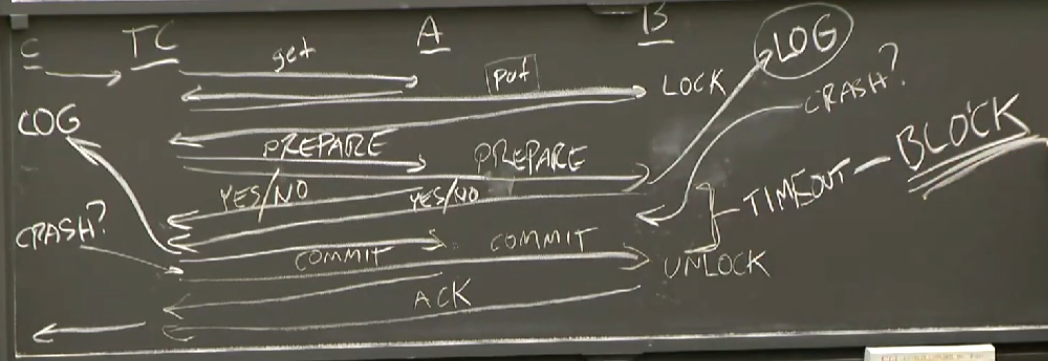 C TC A B
get
put
LOCK
LOG
CRASH?
LOG
PREPARE
PREPARE
YES/NO
YES/NO
TIMEOUT — BLOCK
CRASH?
COMMIT
COMMIT
UNLOCK
ACK